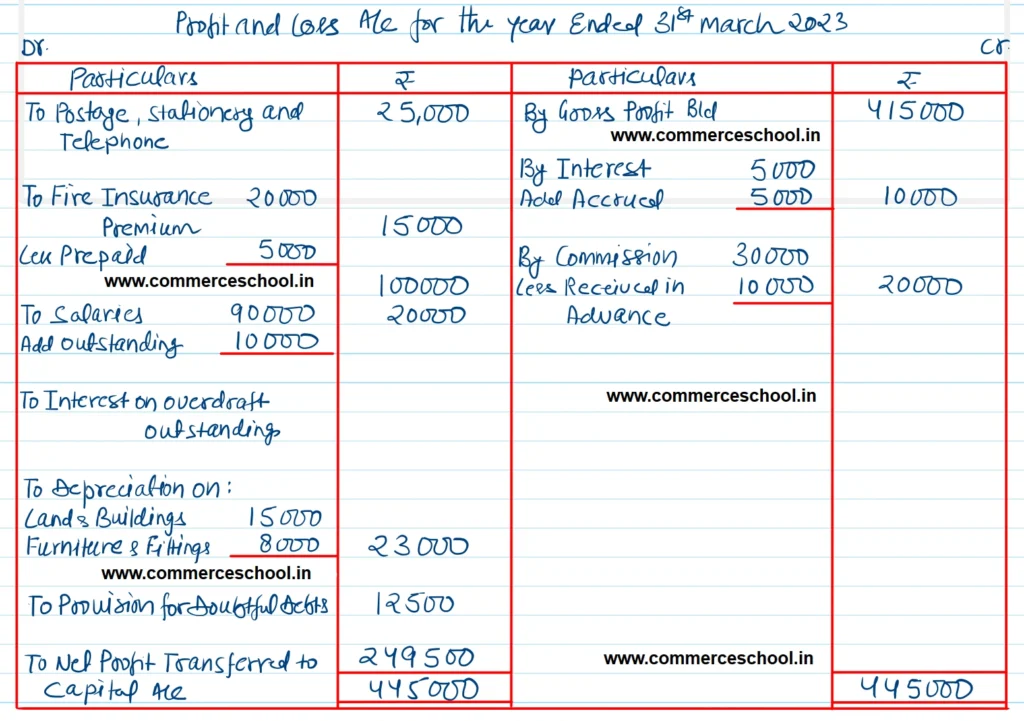 Profit and Loss A/c for the year Ended 31st march 2023
Dr. Cr.
Particulars ₹ Particulars ₹
To Postage, Stationery and 25,000 By Gross Profit B/d 415000
Telephone www.commerceschool.in
By Interest 5000
To Fire Insurance 20000 Add Accrued 5000 10000
Premium 15000
Less Prepaid 5000 By Commission 30000
www.commerceschool.in 100000 Less Received in 10000 20000
To Salaries 90000 20000 Advance
Add Outstanding 10000
To Interest on overdraft www.commerceschool.in
outstanding
To Depreciation on :
Land & Buildings 15000
Furniture & Fittings 8000 23000
www.commerceschool.in
To Provision for Doubtful Debts 12500
To Net Profit Transferred to 249500 www.commerceschool.in
Capital A/c 445000 445000